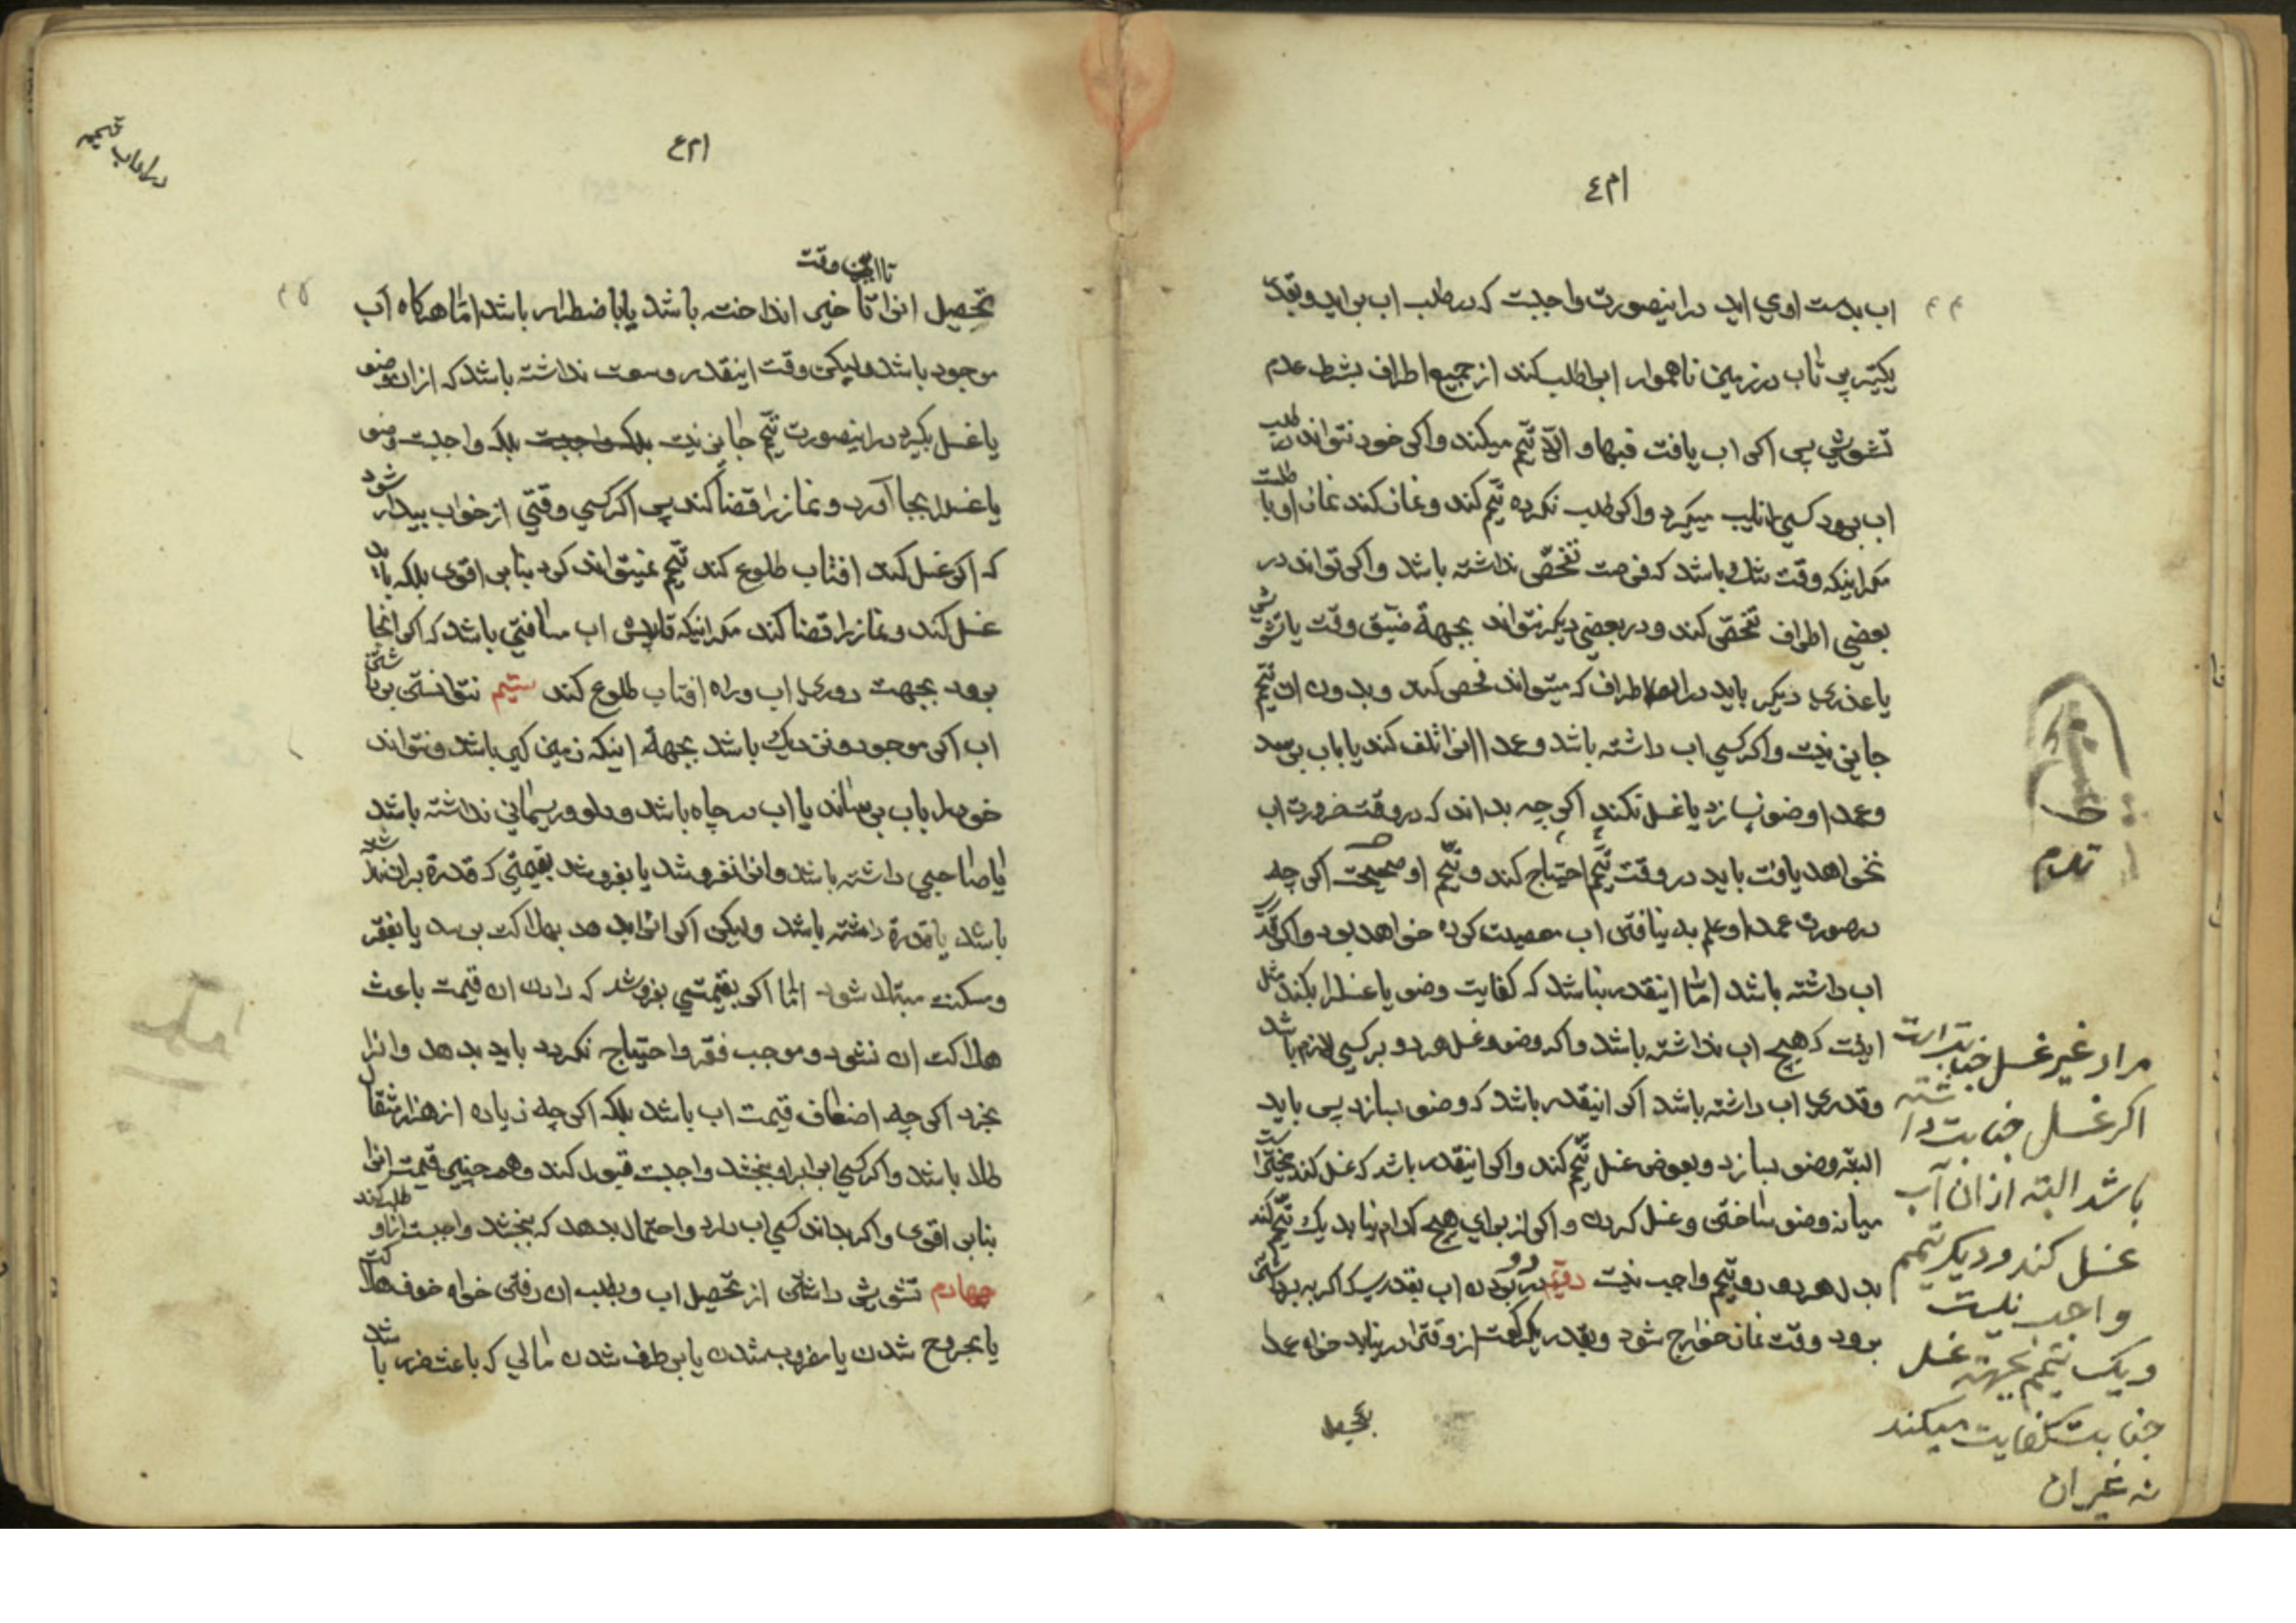 ام٤
اب بدست اوی اید در اینصورت واجبست که در طلب اب براید و بقدر
یکتیر پرتاب در زمین ناهموار ابرا طلب کند از جمیع اطراف بشرط عدم
تشویش پس اکر اب یافت فبها و الّا تیمّم میکند و اکر خود نتواند طلب
اب برود کسی را نایب میکیرد و اکر طلب نکرده تیمّم کند و نماز کند نماز او باطلست
مکر اینکه وقت تنك باشد که فرصت تفحّص نداشته باشد و اکر تواند در
بعضی اطراف تفحّص کند و در بعضی دیکر نتواند بجهة ضیق وقت یا تشویش
یا عذری دیکر باید در اطراف که میتواند تفحص کند و بدون ان تیمّم
جایز نیست و اکر کسی اب داشته باشد و عمدا انرا تلف کند یا باب برسد
و عمدا وضو نسازد یا غسل نکند اکر چه بداند که در وقت ضرورت اب
نخواهد یافت باید در وقت تیمّم احتیاج کند و تیمّم او صحیحست اکر چه
در صورت عمد او علم بد نیافتن اب معصیت کرده خواهد بود و اکر قدری
اب داشته باشد امّا اینقدر نباشد که کفایت وضو یا غسل را بکند مثل
اینست که هیچ اب نداشته باشد و اکر وضو و غسل هر دو بر کسی لازم باشد
و قدری اب داشته باشد اکر اینقدر باشد که وضو بسازد پس باید
البته وضو بسازد و بعوض غسل تیمّم کند و اکر اینقدر باشد که غسل کند مخیّر است
میانه وضو ساختن و غسل کردن و اکر از برای هیچ کدام نیاید یك تیمّم کند
بدل هر دو دو تیمّم واجب نیست دویّم دور بودن اب بقدریکه اکر به برداشتن
برود وقت نماز خوارج شود و بقدر یکرکعت از وقت را در نیابد خواه عمدا
بتحصیل
قلم
مراد غیر غسل جنابتست
اکر غسل جنابت داشته
باشد البته از ان آب
غسل کند و دیکر تیمم
واجب نیست
و یک تیمم بجهت غسل
جنابت کفایت میکند
نه غیر ان
ام٤
در اسباب تیمم
تا این وقت
تحصیل انرا تاخیر انداخته باشد یا باضطرار باشد امّا هرکاه آب
موجود باشد ولیکن وقت اینقدر وسعت نداشته باشد که از ان وضو
یا غسل بکیرد در اینصورت تیمّم جایز نیست بلکه واجبست بلکه واجبست وضو
یا غسل را بجا آورد و نماز را قضا کند پس اکر کسی وقتی از خواب بیدار شود
که اکر غسل کند افتاب طلوع کند تیمّم نمیتواند کرد بنابر اقوی بلکه باید
غسل کند و نماز را قضا کند مکر اینکه تا پیش اب مسافتی باشد که اکر انجا
برود بجهت دوری اب و راه افتاب طلوع کند سیّم نتوانستن برداشتن
اب اکر موجود و نزدیك باشد بجهة اینکه زمین کیر باشد و نتواند
خود را باب برساند یا اب در چاه باشد و دلو و ریسمانی نداشته باشد
یا صاحبی داشته باشد و انرا نفروشد یا بفروشد بقیمتی که قدرة بر ان نداشته
باشد یا قدرة داشته باشد ولیکن اکر انرا بدهد بهلاکت برسد یا بفقر
و مسکنت مبتلا شود امّا اکر بقیمتی بفروشد که دادن ان قیمت باعث
هلاکت ان نشود و موجب فقر و احتیاج نکردد باید بدهد و انرا
بخرد اکر چه اضعاف قیمت اب باشد بلکه اکر چه زیاده از هزار مثقال
طلا باشد و اکر کسی ابرا باو ببخشد واجبست قبول کند و همچنین قیمت انرا
بنابر اقوی و اکر بداند کسی اب دارد و احتمال بدهد که ببخشد واجبست از او طلب کند
چهارم تشویش داشتن از تحصیل اب و بطلب ان رفتن خواه خوف هلاکت
یا مجروح شدن یا مضروب شدن یا برطرف شدن مالی که باعث ضرر باشد